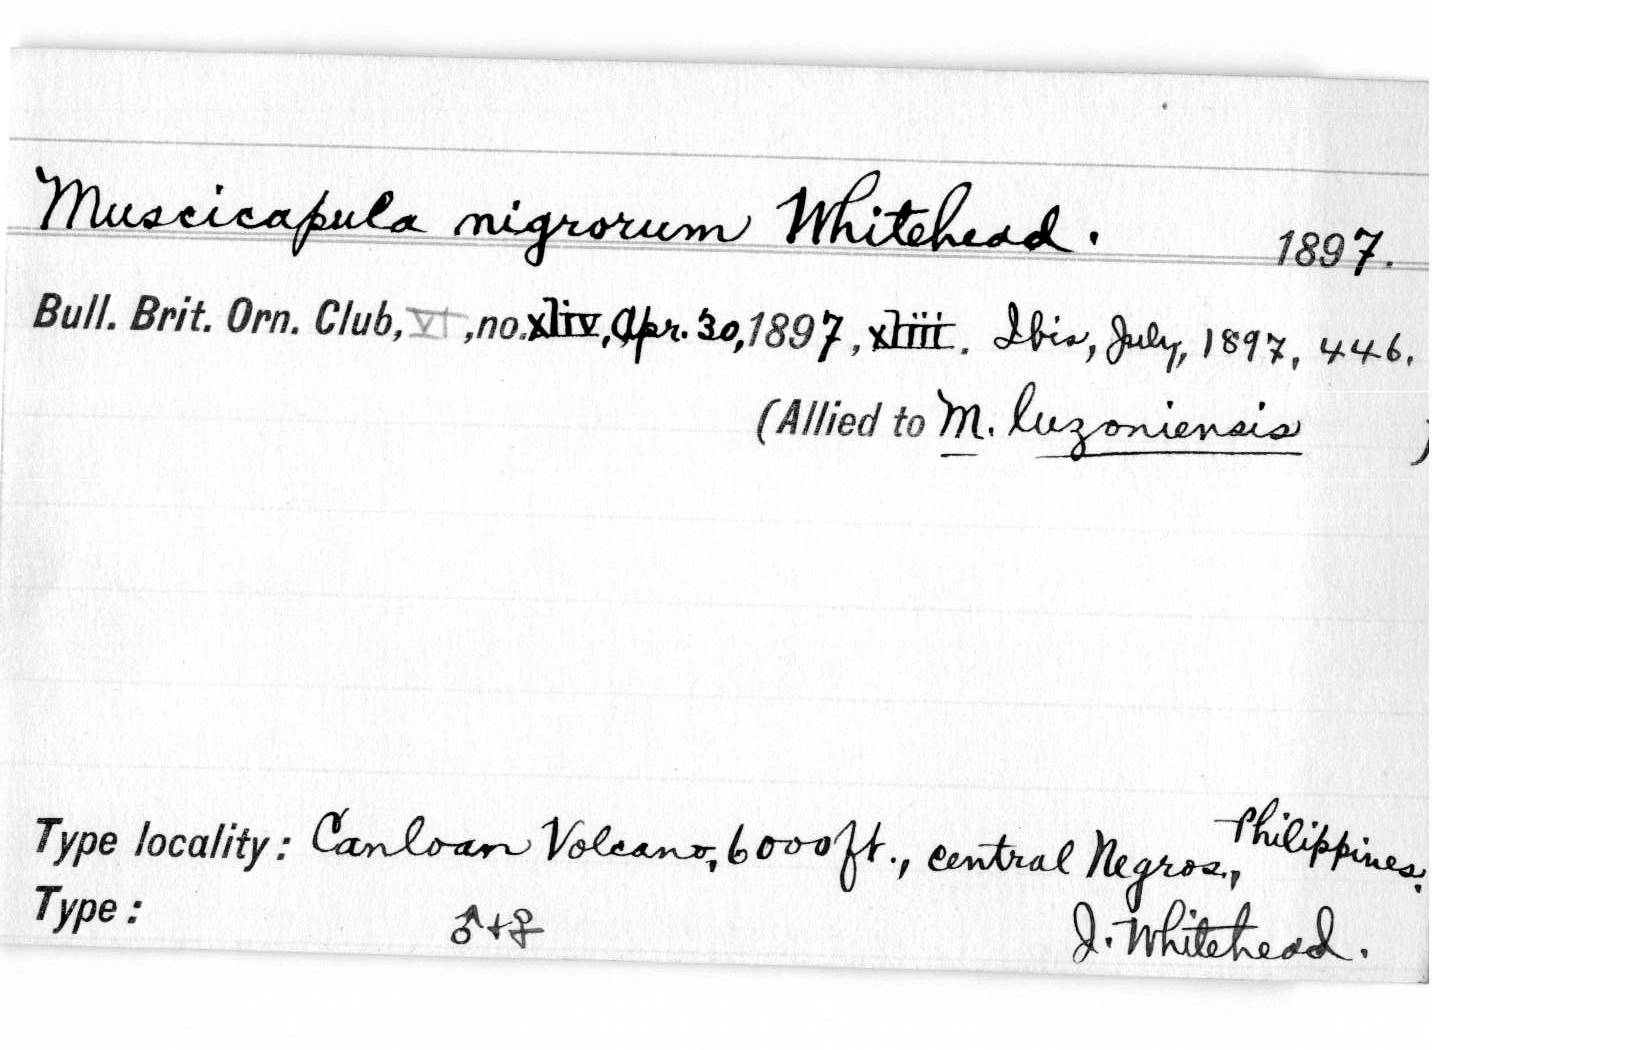 Muscicapula nigrorum Whitehead. 1897.
Bull. Brit. Orn. Club, VI, no. xliv, Apr. 30, 1897, xliii. Ibis, July, 1897, 446.
(Allied to M. luzoniensis )
Type locality: Canloan Volcano, 6000 ft., central Negros, Philippines.
Type: ♂+♀ J. Whitehead.